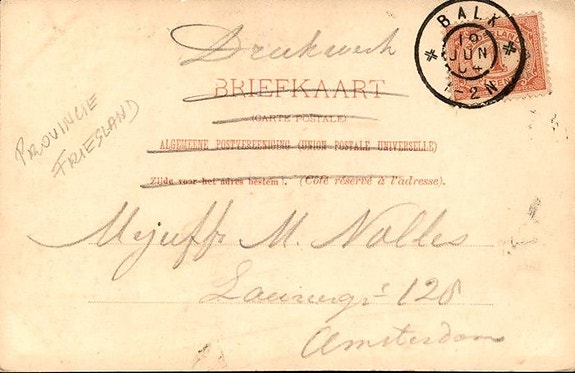 Drukwerk
BALK
16
JUN
04
1-2N
BRIEFKAART
(CARTE POSTALE)
ALGEMEENE POSTVEREENIGING (UNION POSTALE UNIVERSELLE)
Zijde voor het adres bestemd. (Côté réservé à l'adresse).
PROVINCIE
FRIESLAND
Mejuffr M. Nolles
Lauriergr 128
Amsterdam